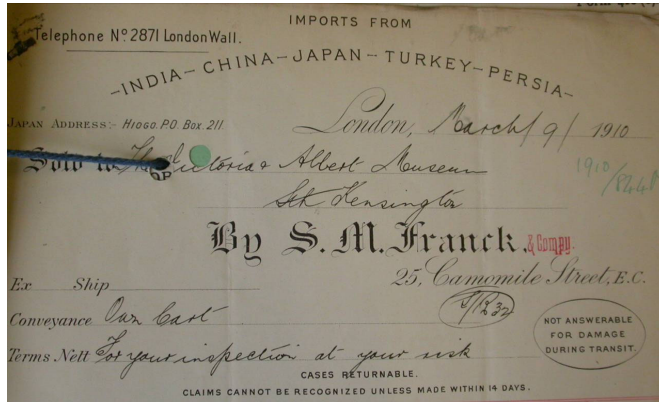 IMPORTS FROM
Telephone No. 2871 London Wall.
-INDIA-CHINA-JAPAN-TURKEY-PERSIA-
JAPAN ADDRESS:- HIOGO. P.O. BOX. 211.
London, March 9 1910
Sold to The Victoria & Albert Museum
1910
Sth Kensington
By S. M. Franck & Compy.
25, Camomile Street, E.C.
Ex Ship
Conveyance Our Cart
NOT ANSWERABLE
FOR DAMAGE
DURING TRANSIT.
Terms Nett For your inspection at your risk
CASES RETURNABLE.
CLAIMS CANNOT BE RECOGNIZED UNLESS MADE WITHIN 14 DAYS.